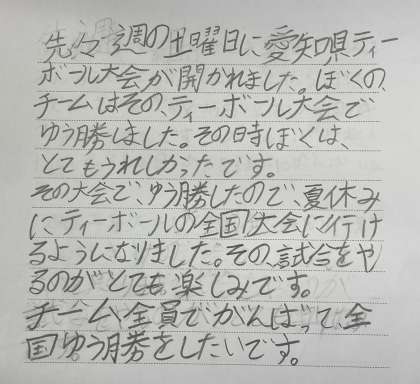 先々週の土曜日に愛知県ティー
ボール大会が開かれました。ぼくの、
チームはその、ティーボール大会で
ゆう勝しました。その時ぼくは、
とてもうれしかったです。
その大会で、ゆう勝したので、夏休み
にティーボールの全国大会に行け
るようになりました。その、試合をや
るのがとても楽しみです。
チーム全員でがんばって、全
国ゆう勝をしたいです。